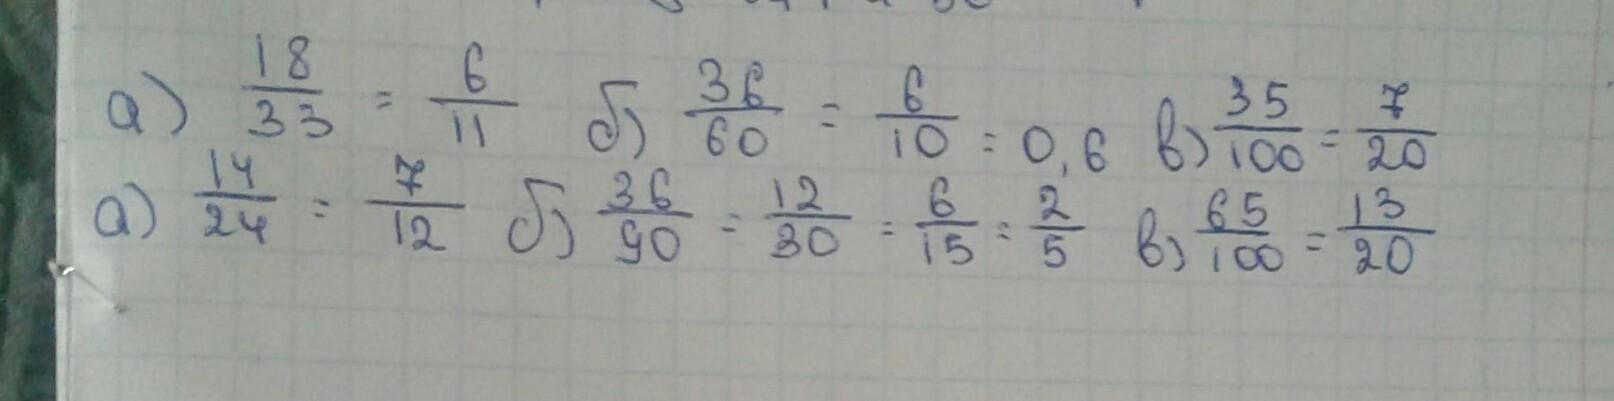 а) 18/33 = 6/11 б) 36/60 = 6/10 = 0,6 в) 35/100 = 7/20
а) 14/24 = 7/12 б) 36/90 = 12/30 = 6/15 = 2/5 в) 65/100 = 13/20